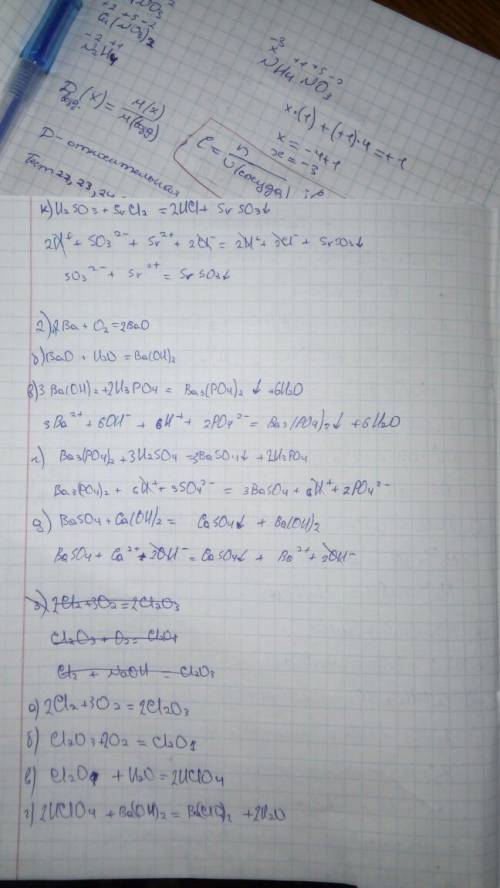 NO₃
+2 +5 -2
Ca(NO₃)₂
-2 +1
N₂H₄
-3
x +1 +5 -2
NH₄NO₃
x·(1) + (+1)·4 = +1
x = -4+1
x = -3
D возд. (x) = M(x) / M(возд)
D - относительная
Тест 22, 23, 24
C = n / V(сосуда)
к) H₂SO₃ + SrCl₂ = 2HCl + SrSO₃↓
2H⁺ + SO₃²⁻ + Sr²⁺ + 2Cl⁻ = 2H⁺ + 2Cl⁻ + SrSO₃↓
SO₃²⁻ + Sr²⁺ = SrSO₃↓
2) 2Ba + O₂ = 2BaO
б) BaO + H₂O = Ba(OH)₂
в) 3Ba(OH)₂ + 2H₃PO₄ = Ba₃(PO₄)₂↓ + 6H₂O
3Ba²⁺ + 6OH⁻ + 6H⁺ + 2PO₄³⁻ = Ba₃(PO₄)₂↓ + 6H₂O
г) Ba₃(PO₄)₂ + 3H₂SO₄ = 3BaSO₄↓ + 2H₃PO₄
Ba₃(PO₄)₂ + 6H⁺ + 3SO₄²⁻ = 3BaSO₄ + 6H⁺ + 2PO₄³⁻
д) BaSO₄ + Ca(OH)₂ = CaSO₄↓ + Ba(OH)₂
BaSO₄ + Ca²⁺ + 2OH⁻ = CaSO₄↓ + Ba²⁺ + 2OH⁻
3) 2Cl₂ + 3O₂ = 2Cl₂O₃
Cl₂O₃ + O₂ = Cl₂O₇
Cl₂ + NaOH = Cl₂O₃
а) 2Cl₂ + 3O₂ = 2Cl₂O₃
б) Cl₂O₃ + 2O₂ = Cl₂O₇
в) Cl₂O₇ + H₂O = 2HClO₄
г) 2HClO₄ + Ba(OH)₂ = Ba(ClO₄)₂ + 2H₂O